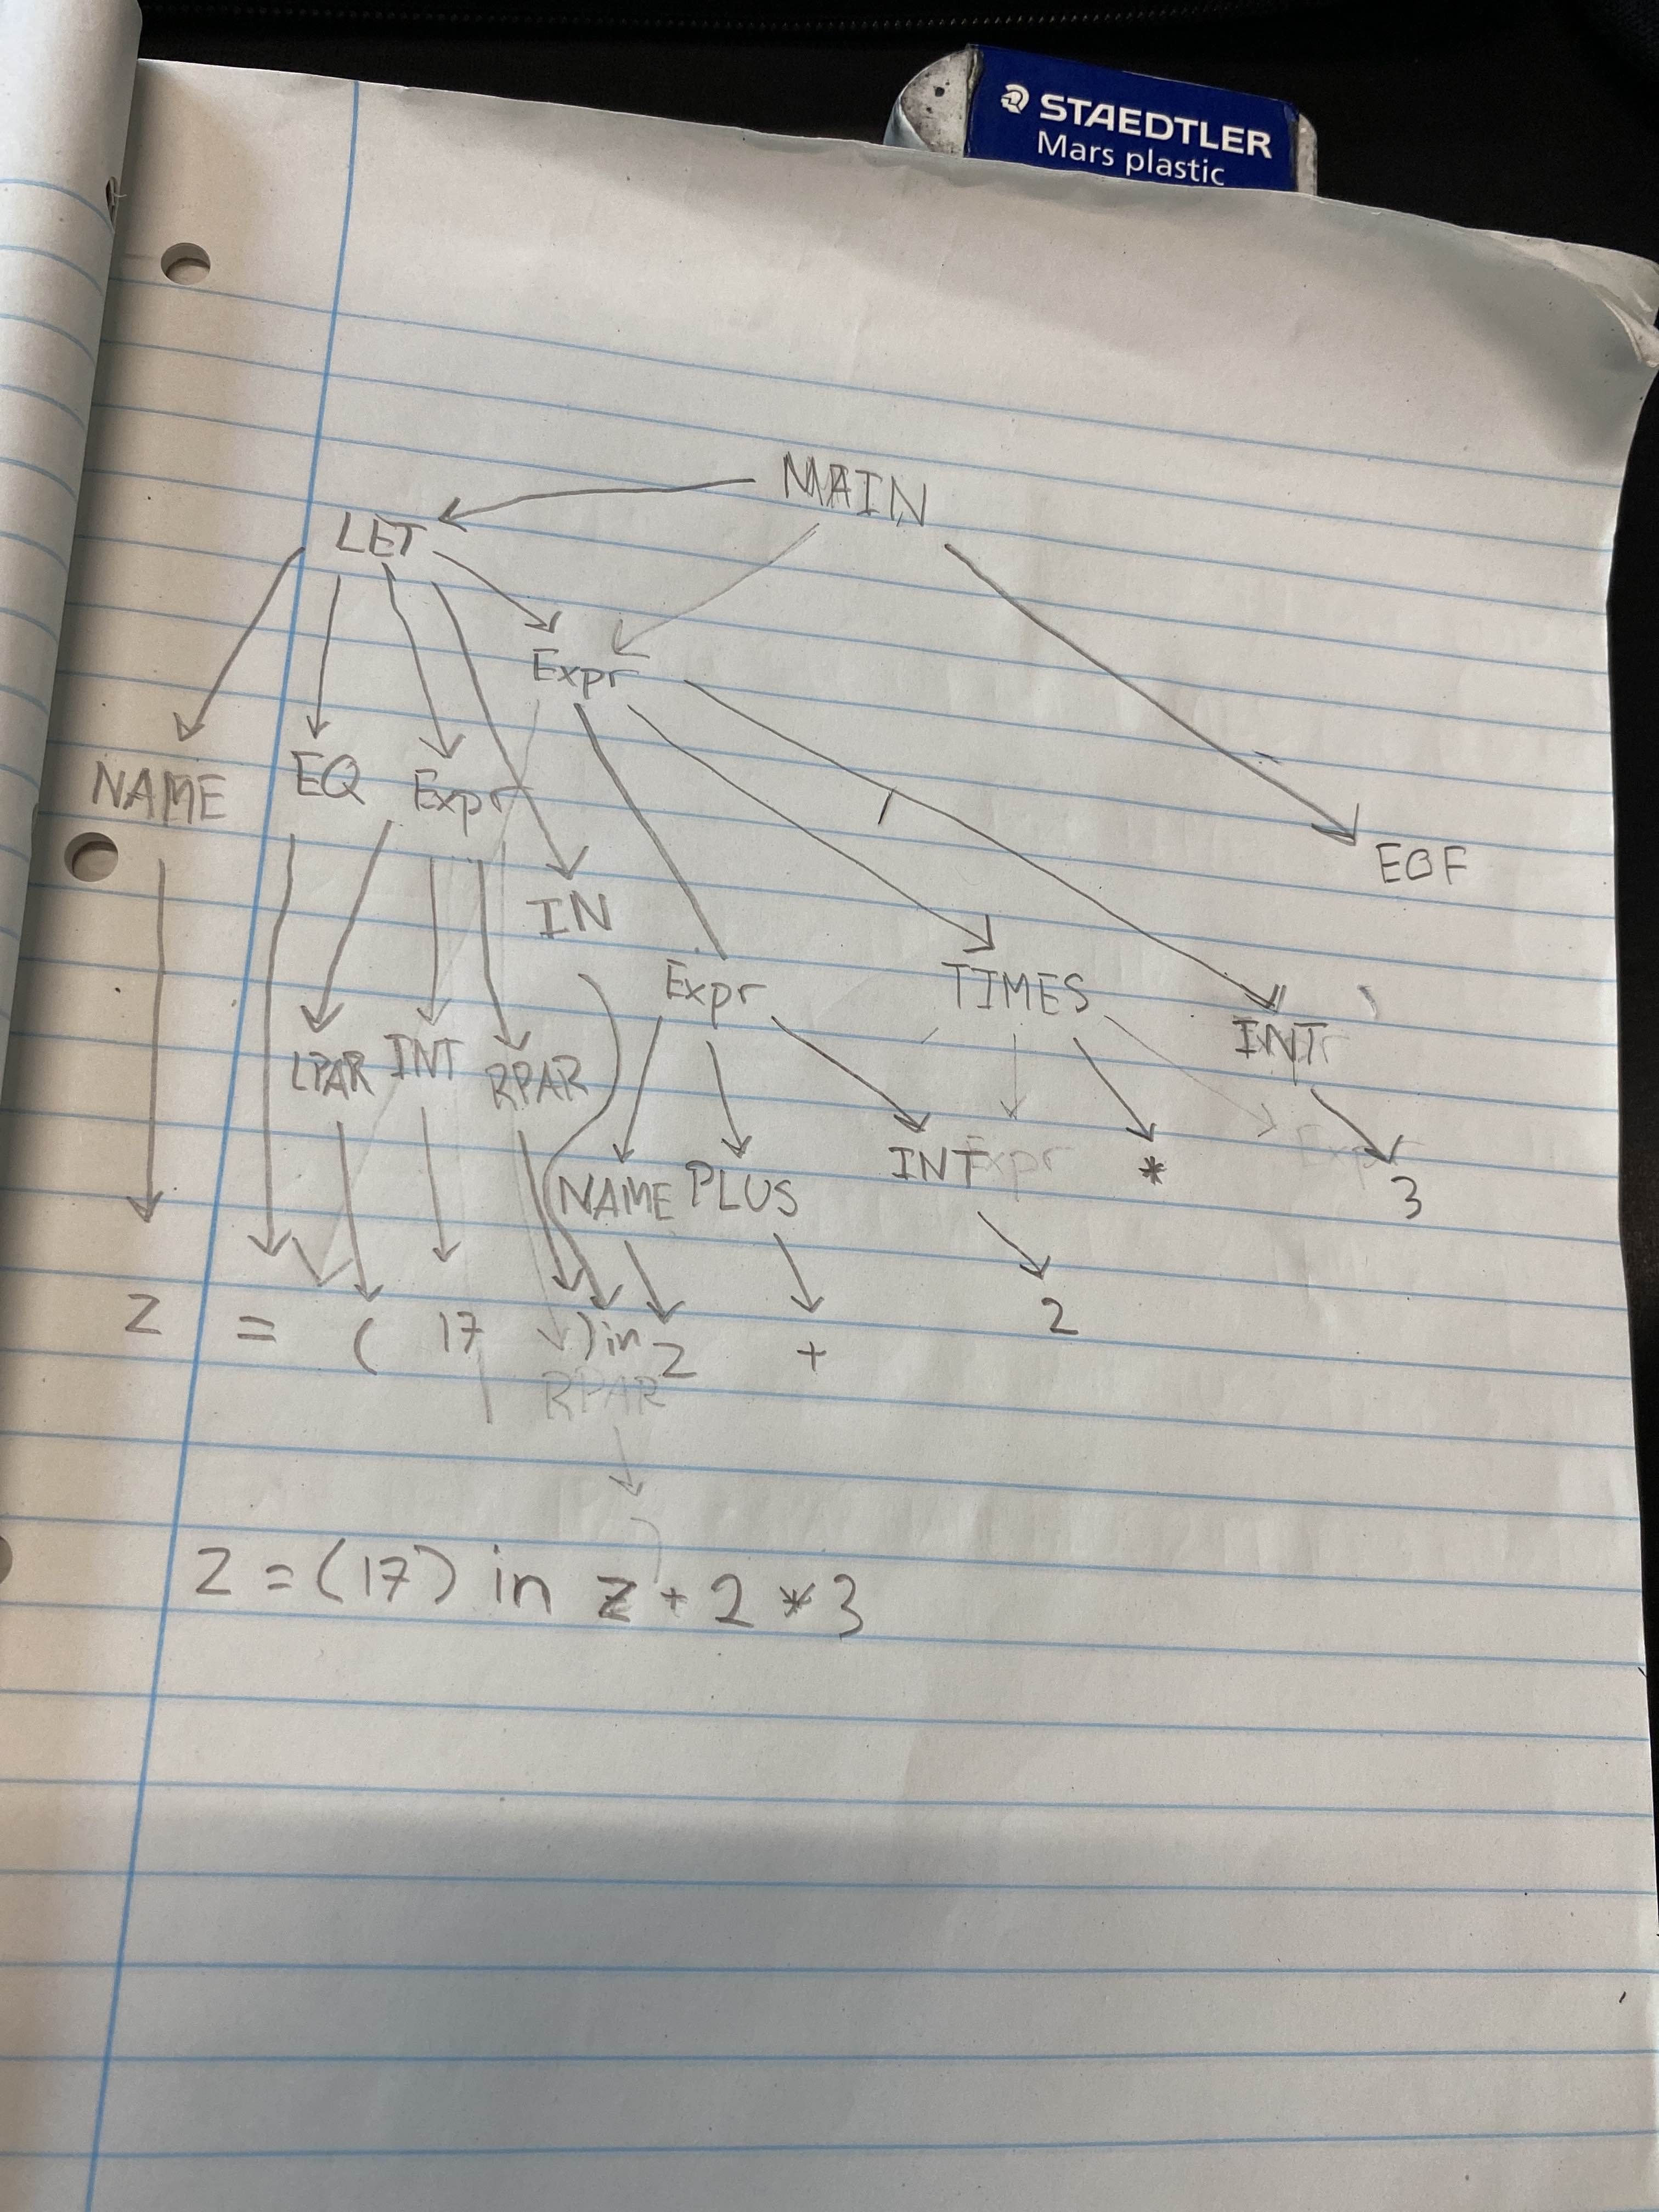 STAEDTLER
Mars plastic
MAIN
LET
Expr
NAME EQ Expr
EOF
IN
Expr TIMES INT
LPAR INT RPAR
NAME PLUS INT Expr * Expr 3
Z = ( 17 ) in Z + 2
RPAR
)
Z = (17) in Z + 2 * 3